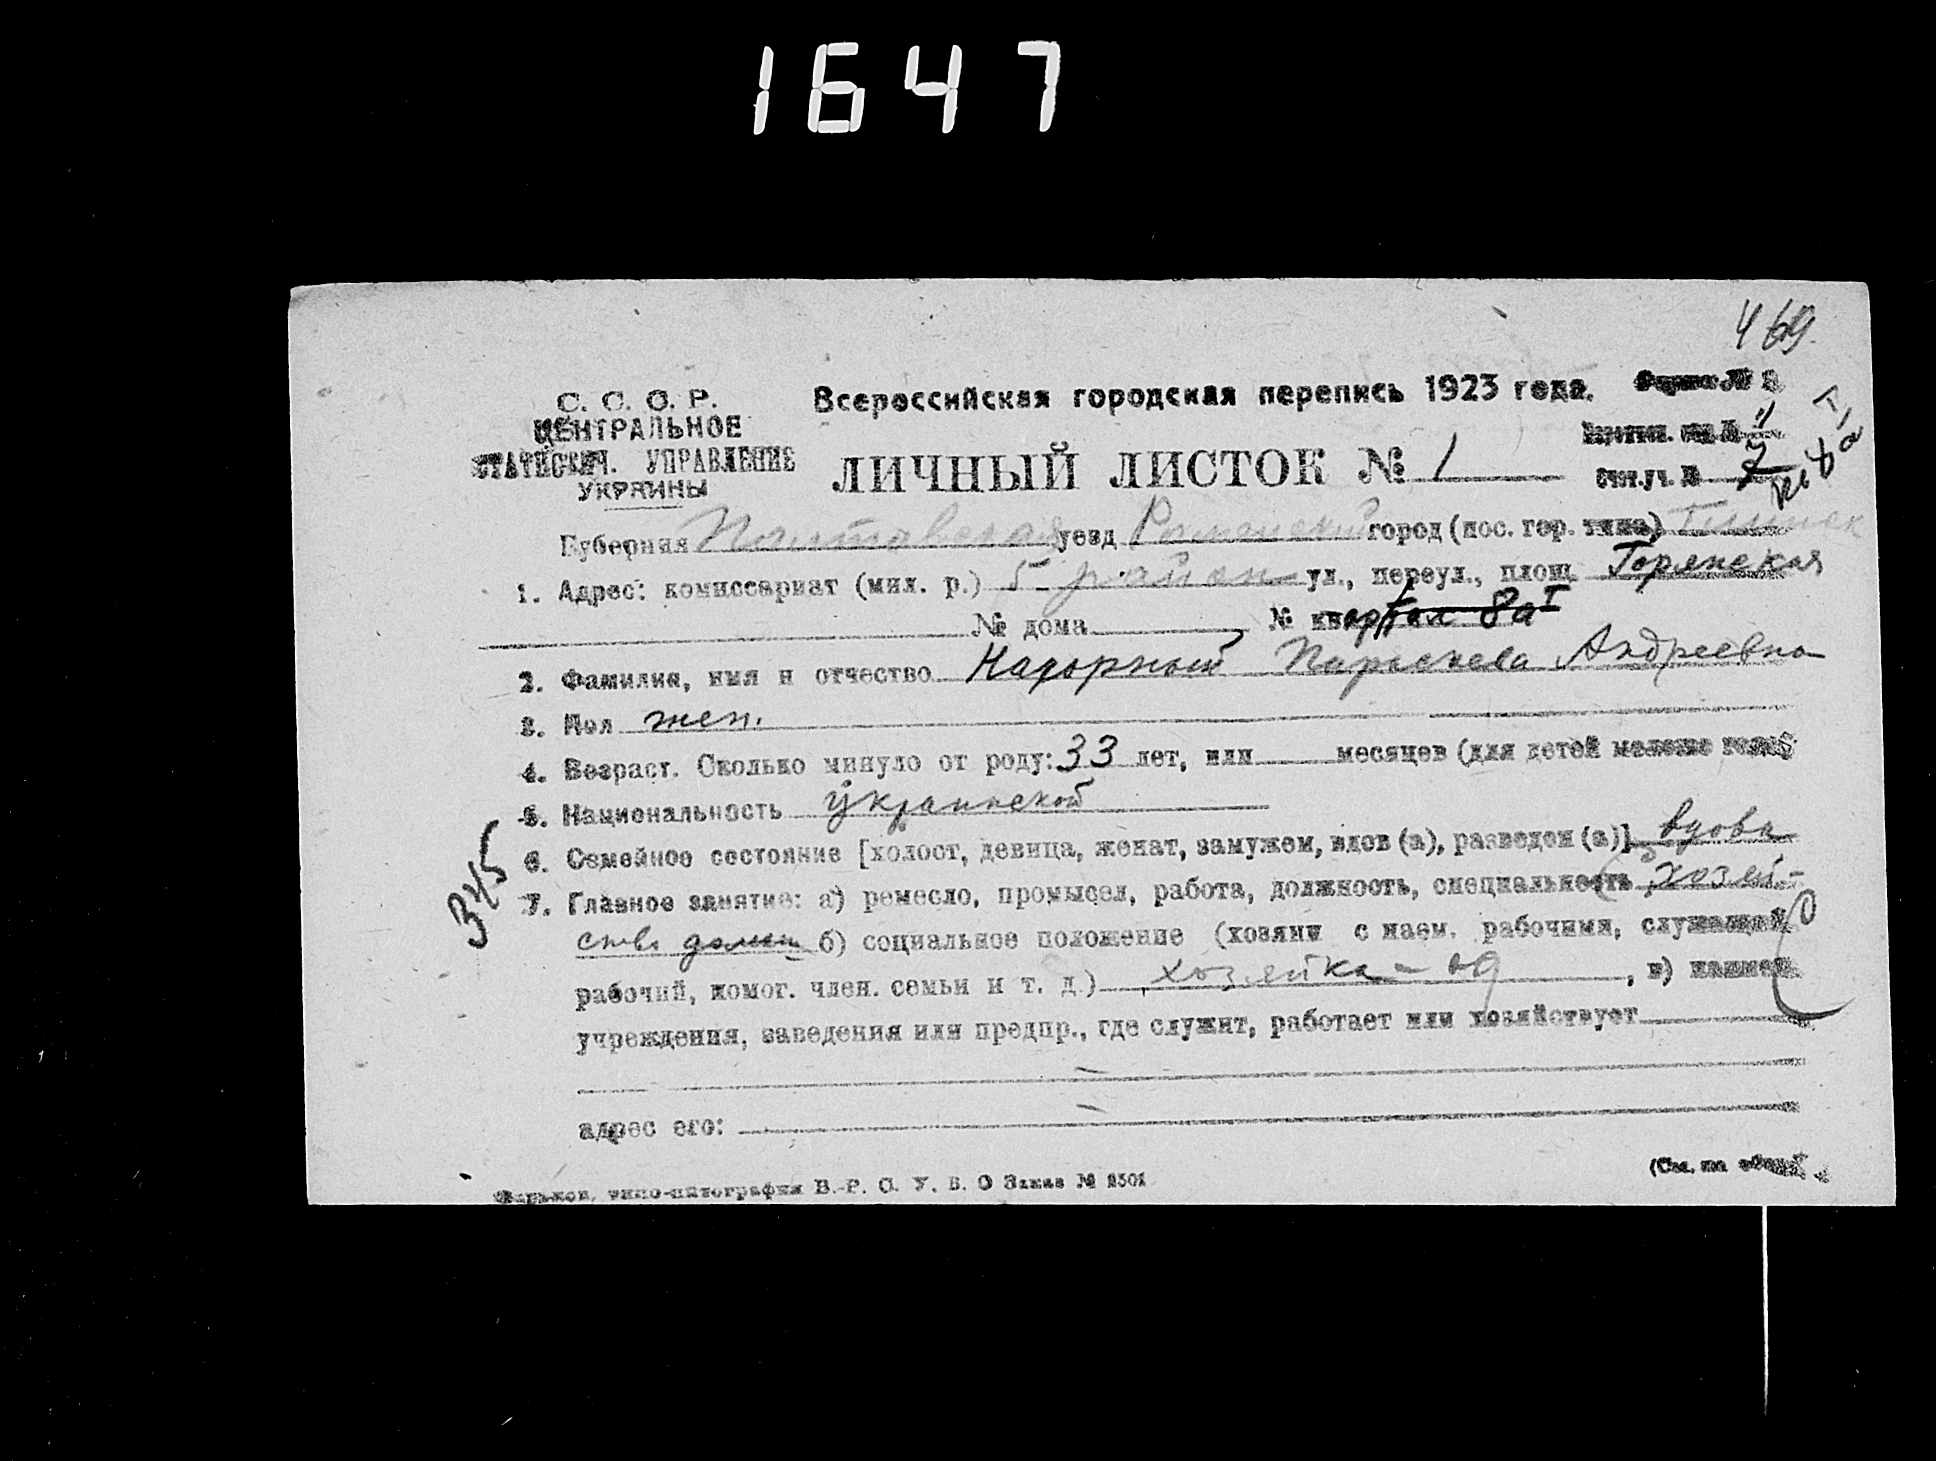 1647
469.
С. С. С. Р.
ЦЕНТРАЛЬНОЕ
СТАТИСТИЧ. УПРАВЛЕНИЕ
УКРАИНЫ
Всероссийская городская перепись 1923 года.
ЛИЧНЫЙ ЛИСТОК № 1
Счет. уч. № 7
Губерния Полтавская уезд Роменский город (пос. гор. типа)
1. Адрес: комиссариат (мил. р.) 5 район ул., переул., площ.
№ дома № 8а I
2. Фамилия, имя и отчество Нагорный Параскева Андреевна
3. Пол жен.
4. Возраст. Сколько минуло от роду: 33 лет, или месяцев (для детей
5. Национальность украинской
6. Семейное состояние [холост, девица, женат, замужем, вдов (а), разведен (а)] вдова
345
7. Главное занятие: а) ремесло, промысел, работа, должность, специальность хозяй-
ство б) социальное положение (хозяин с наем. рабочими, служащий
рабочий, помог. член. семьи и т. д.) хозяйка , в)
учреждения, заведения или предпр., где служит, работает или хозяйствует
адрес его:
(См. на
Харьков, типо-литография В. Р. С. У. Б. О Заказ №